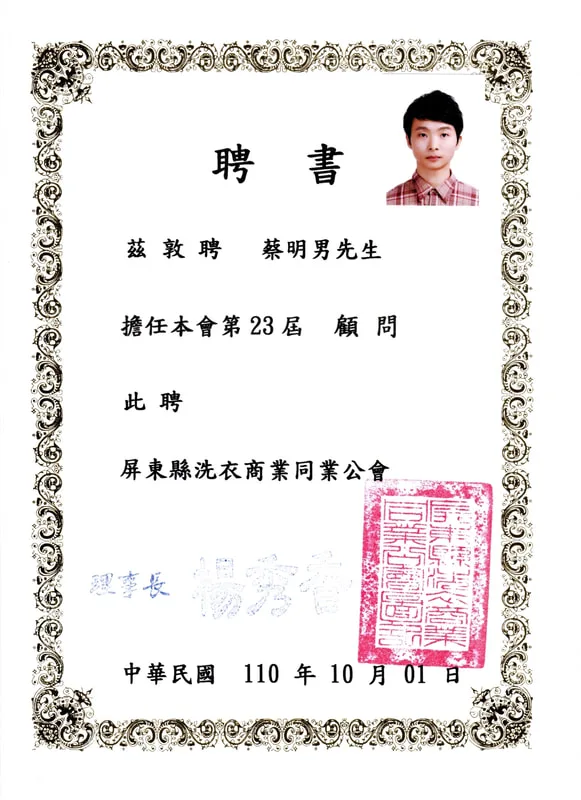 聘 書
茲 敦 聘 蔡明男先生
擔任本會第 23 屆 顧 問
此 聘
屏東縣洗衣商業同業公會
理事長 楊秀香
中華民國 110 年 10 月 01 日